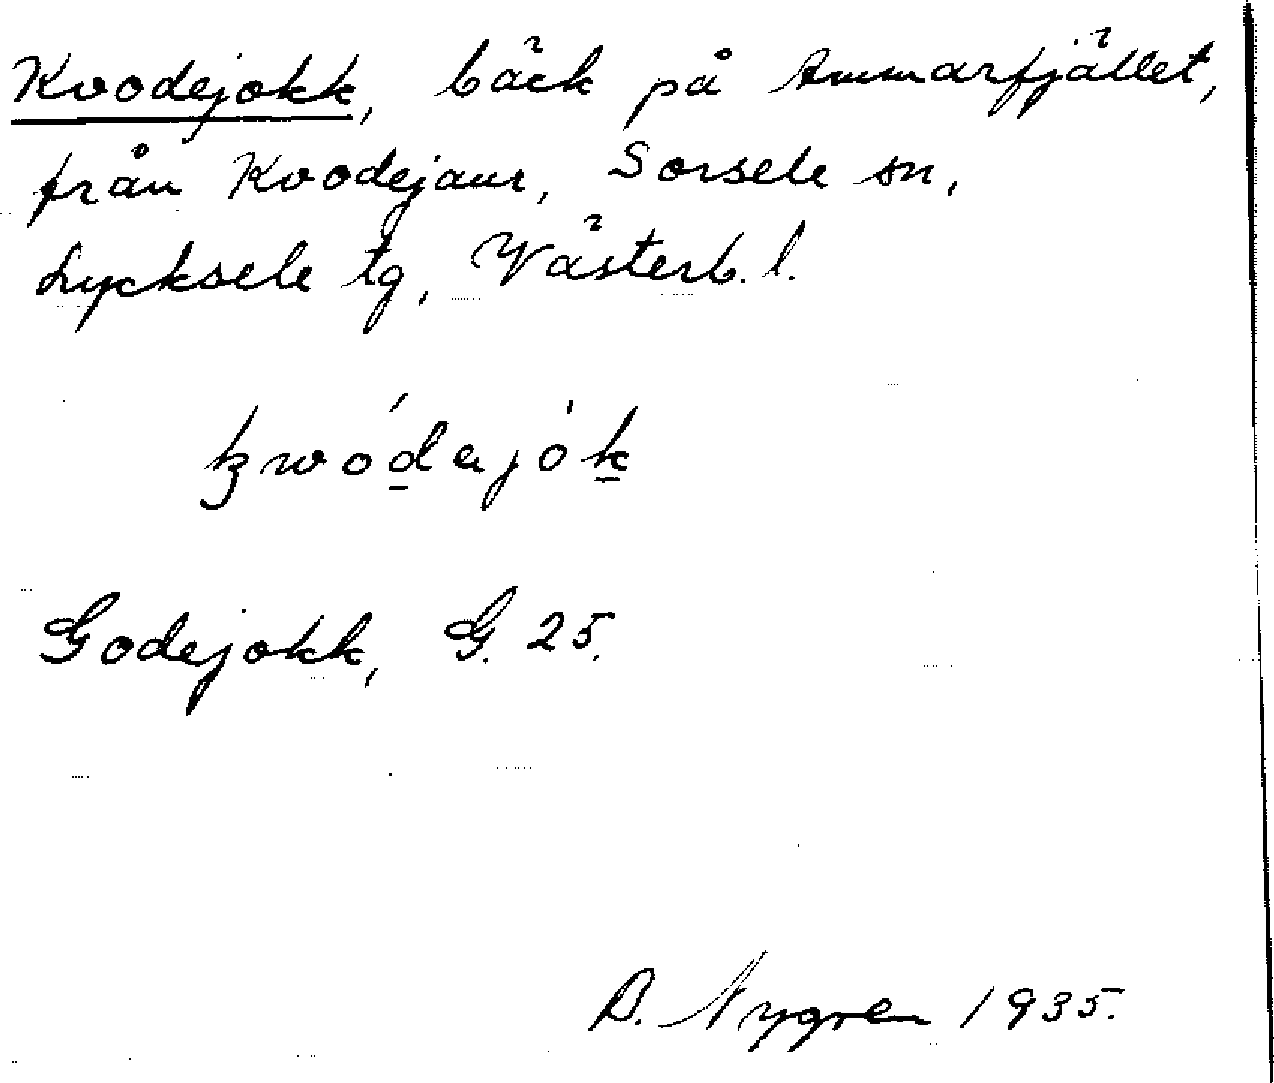 Kvodejokk, bäck på Ammarfjället,
från Kvodejaur, Sorsele sn,
Lycksele tg, Västerb. l.
Godejokk, G. 25.
B. Nygren 1935.